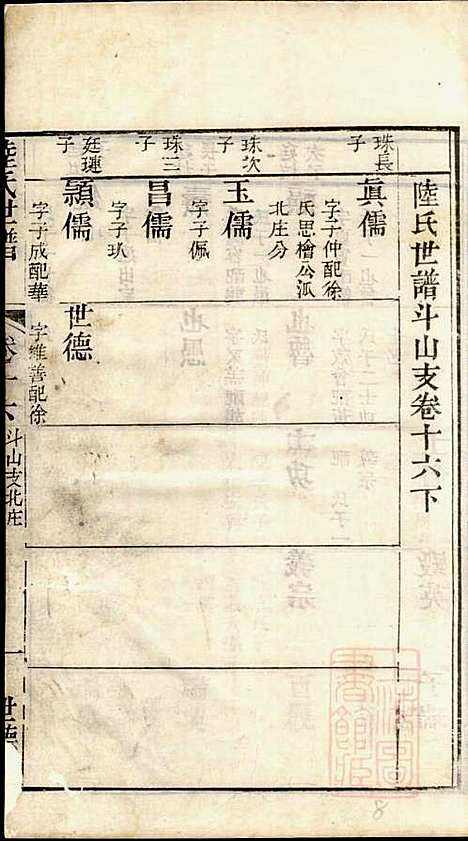 陸氏世譜斗山支卷十六下
珠長子
真儒
字子仲配徐
氏思檜公泒
北庄分
珠次子
玉儒
字子佩
珠三子
昌儒
字子玖
廷璉子
頴儒
字子成配華
世德
字維善配徐
陸氏世譜
卷十六
斗山支北庄
一
世德
8